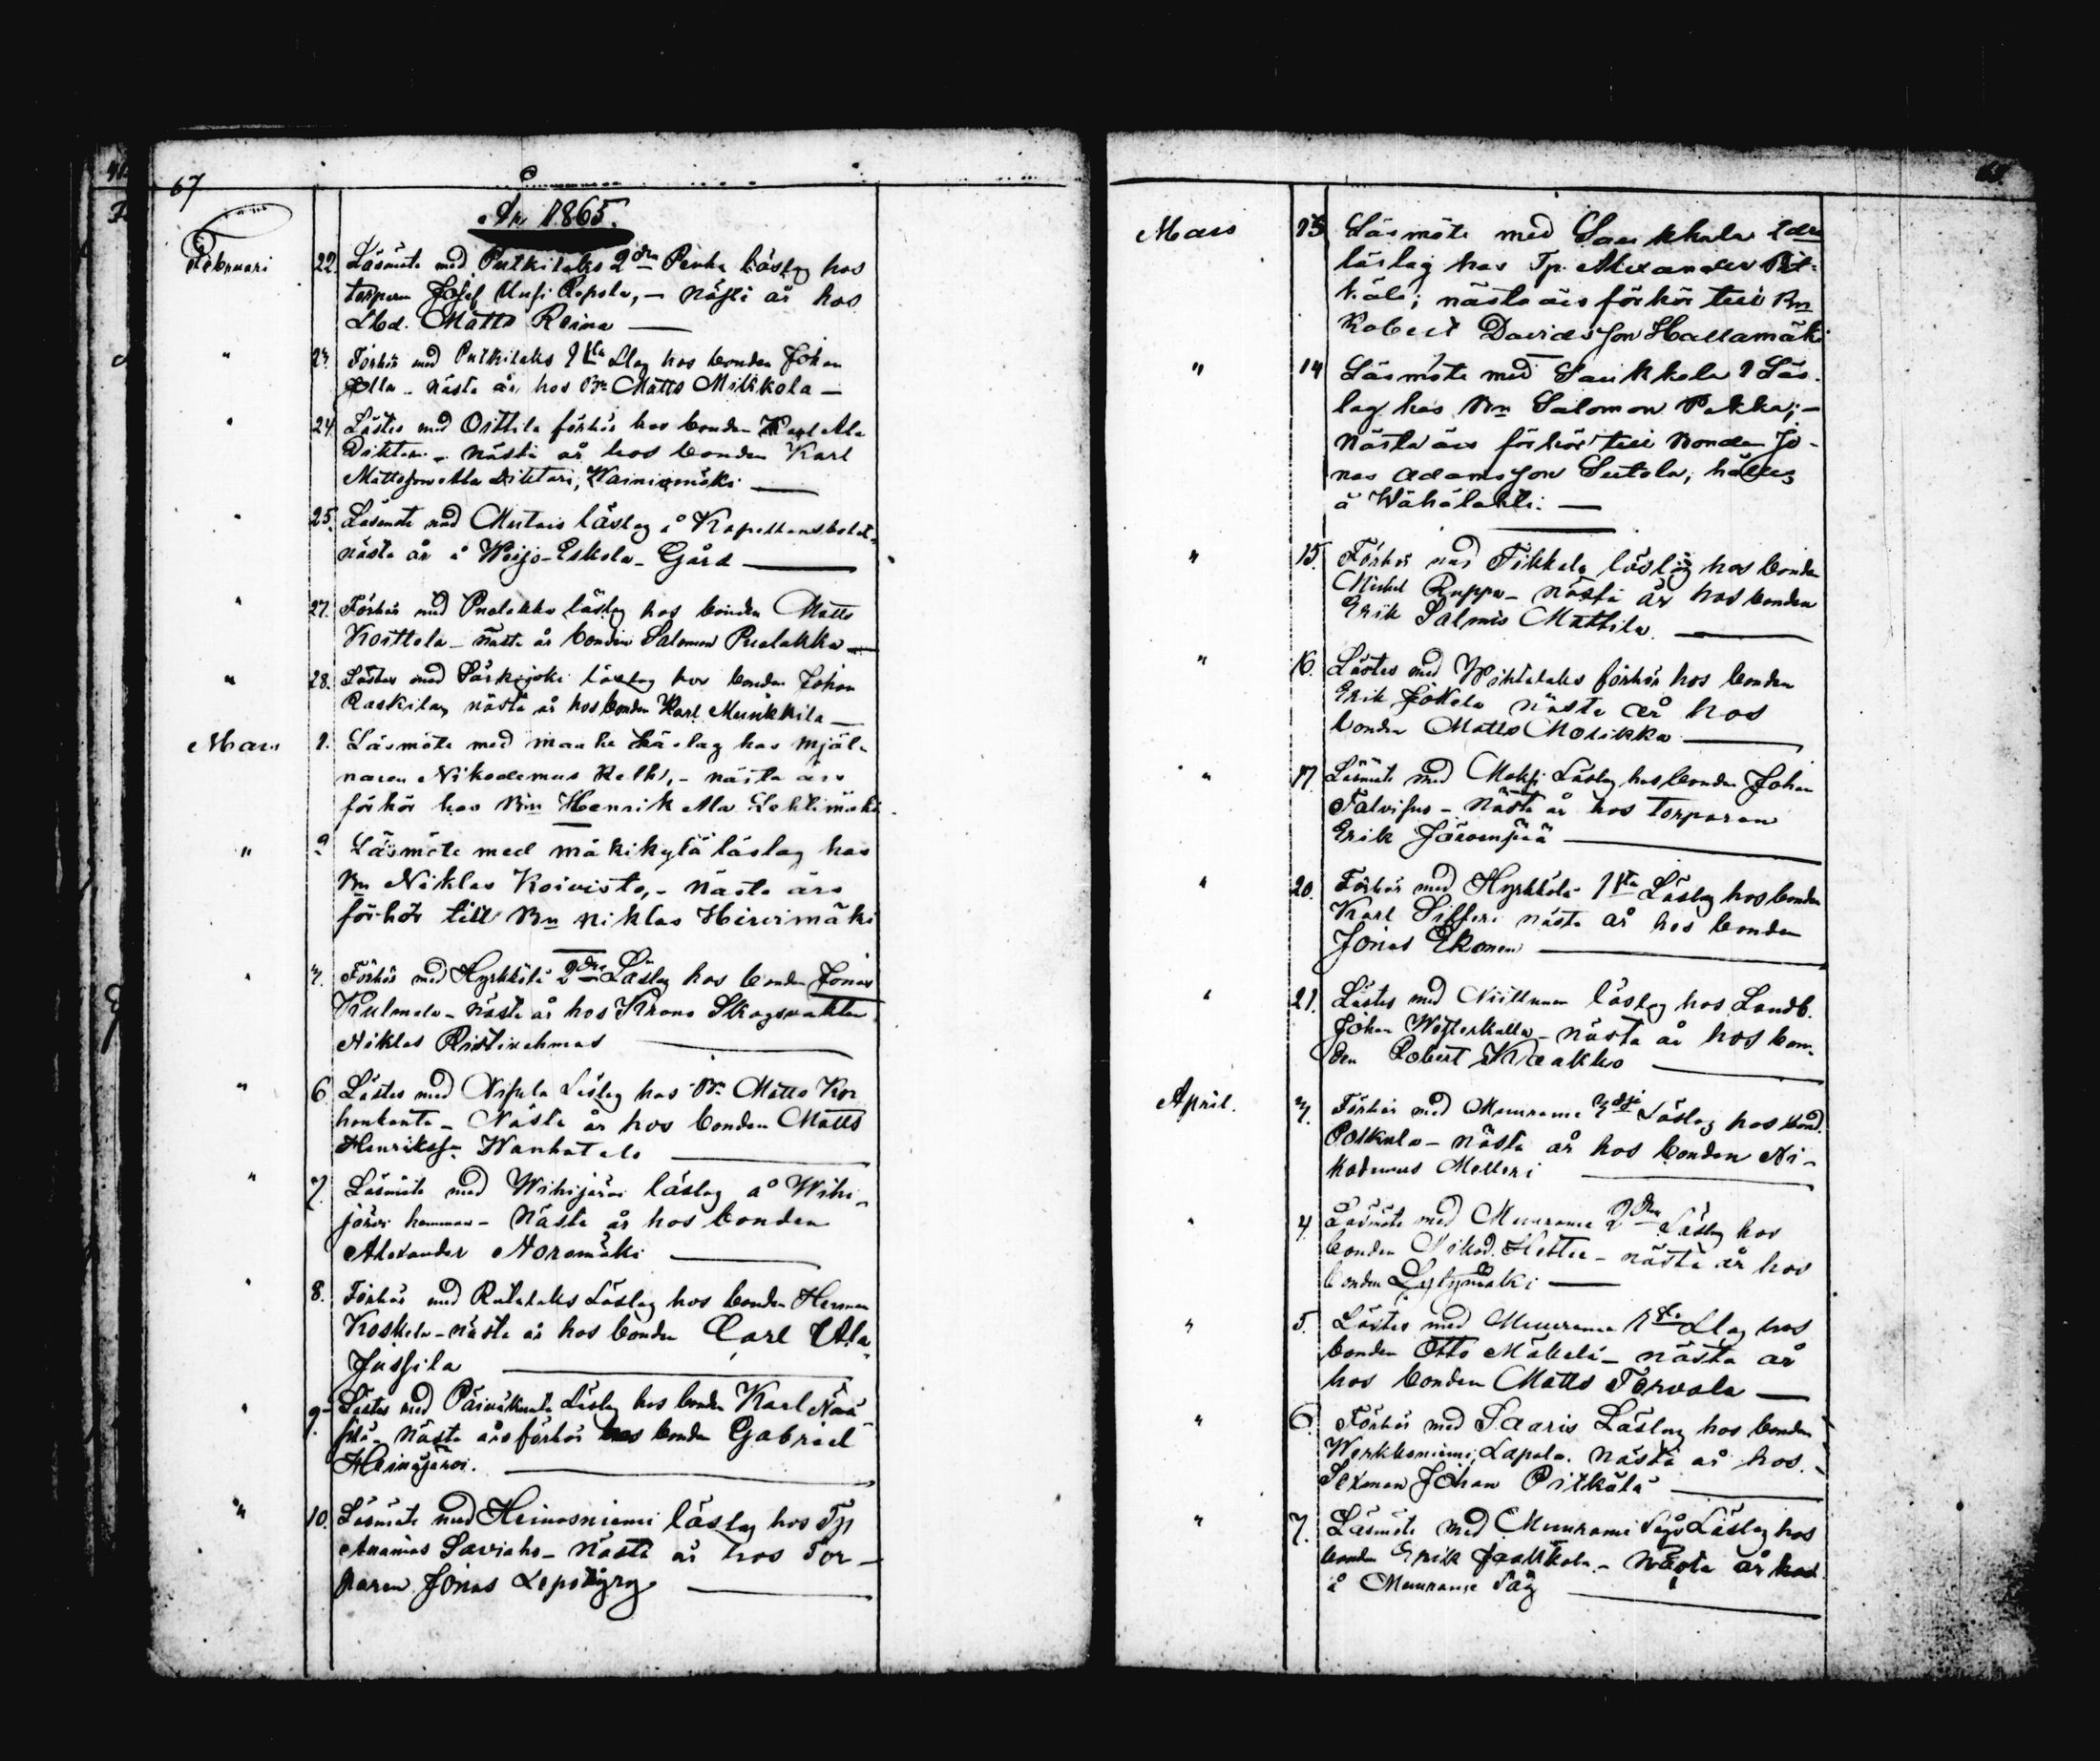 67
År 1865.
Februari 22. Läsmöte med Putkilaks 2dra Penka läslag hos
torparen Josef Uusi Repola, - nästa år hos
Lbd. Matts Reina —
" 23. Förhör med Putkilaks 1sta Llag hos bonden Johan
Ylla - nästa år hos Bn Matts Mikkola —
" 24. Lästes med Osttila förhör hos bonden Karl Ala
Diktari - nästa år hos bonden Karl
Mattsson Ala Diktari, Wainionmäki —
" 25. Läsmöte med Mutais läslag å Kapellansbolet -
nästa år å Weijo-Eskola - Gård —
" 27. Förhör med Pualakka läslag hos bonden Matts
Koittola - nästa år bonden Salomon Pualakka —
" 28. Lästes med Särkijoki läslag hos bonden Johan
Raskila, nästa år hos bonden Karl Munkkila —
Mars 1. Läsmöte med manhe Läslag hos mjöl-
naren Nikodemus Kelhä, - nästa års
förhör hos Bn Henrik Ala Lehtimäki
" 2 Läsmöte med mäkikylä läslag hos
Bn Niklas Koivisto, - nästa års
förhör till Bn Niklas Hirvimäki
" 3. Förhör med Hyrkkölä 2dra Läslag hos bonden Jonas
Kulmala - nästa år hos Krono Skogsvakten
Niklas Ristivahmas —
" 6 Lästes med Nisula Läslag hos Bn Matts Kor
honkanta - Nästa år hos bonden Matts
Henrikss. Wanhatalo —
" 7. Läsmöte med Wihijärvi läslag å Wihi-
järvi hemman - Nästa år hos bonden
Alexander Noromäki —
" 8. Förhör med Rutalaks Läslag hos bonden Herman
Koskela - nästa år hos bonden Carl Ala
Jussila —
" 9. Lästes med Päiväkunta Läslag hos bonden Karl
nästa års förhör hos bonden Gabriel
Heinäjärvi. —
" 10. Läsmöte med Heinosniemi läslag hos Tp
Ananias Saviaho - Nästa år hos Tor-
paren Jonas Lepokyrö —
Mars 13 Läsmöte med Saukkola 2dra
läslag hos Tp. Alexander Pit-
kälä; nästa års förhör till Bn
Robert Davidsson Hallamäki
" 14 Läsmöte med Saukkola 1 Läs-
lag hos Bn Salomon Pekka; -
nästa års förhör till Bonden Jo-
nas Adamsson Sutela, hålles
å Wähälahti. —
" 15. Förhör med Tikkala läslag hos bonden
Michel Ruppa - nästa år hos bonden
Erik Salmis Mattila. —
" 16. Lästes med Wihtalaks förhör hos bonden
Erik Jokela nästa år hos
bonden Matts Molikka —
" 17 Läsmöte med Moksi Läslag hos bonden Johan
Talvisuo - Nästa år hos Torparen
Erik Järvenpää —
" 20. Förhör med Hyrkkölä 1sta Läslag hos bonden
Karl Sifferi nästa år hos bonden
Jonas Ekonen —
" 21. Lästes med Niittunen läslag hos Landb.
Johan Westerkulla - nästa år hos bon-
den Robert Kraakko —
April. 3. Förhör med Muurame 3dje Läslag hos bond.
Polkula - nästa år hos bonden Ni-
kodemus Metteri —
" 4. Läsmöte med Muurame 2dra Läslag hos
bonden Nikod. Hettee - nästa år hos
bonden Lytymäki —
" 5. Lästes med Muurame 1sta Llag hos
bonden Otto Mäkelä - nästa år
hos bonden Matts Torvala —
" 6. Förhör med Saaris Läslag hos bonden
Werkkoniemi, Lapola. nästa år hos
Sexman Johan Pitkälä —
" 7. Läsmöte med Muurame Sågs Läslag hos
bonden Erik Jaakkola. - Nästa år hos
å Muurame Såg —